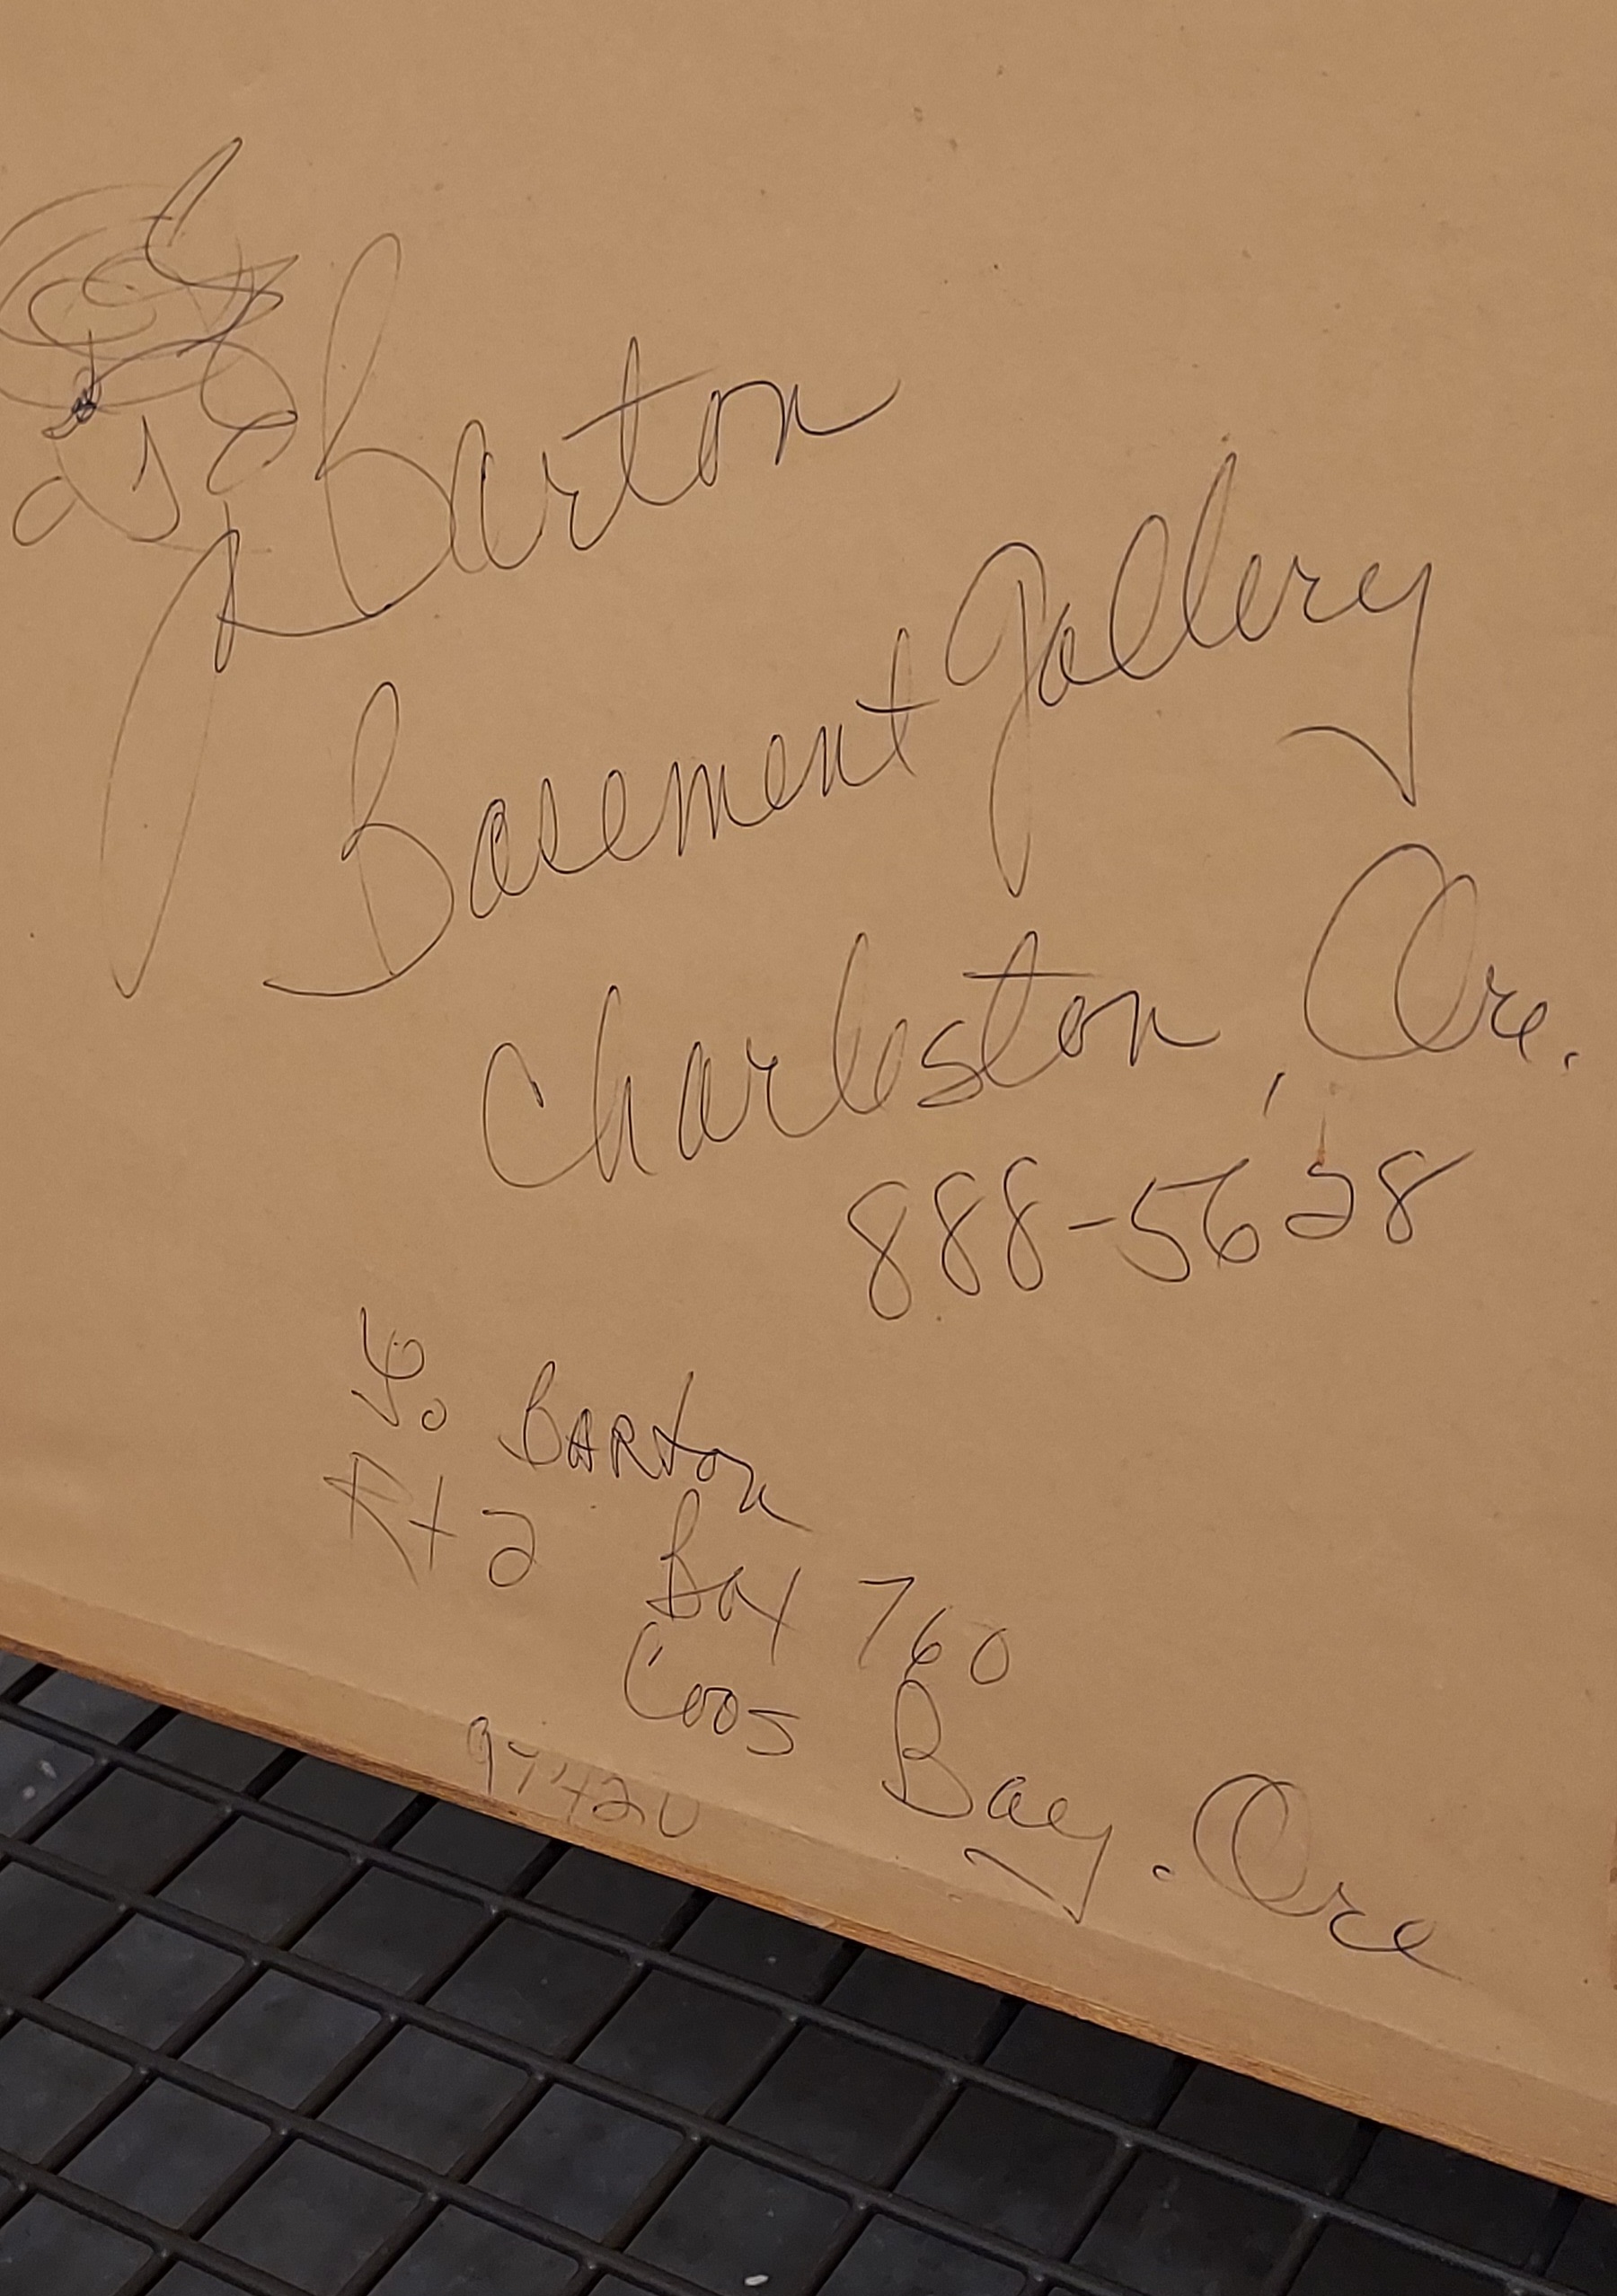 Barton
Basement Gallery
Charleston, Ore.
888-5628
% Barton
Rt 2 Box 760
Coos Bay. Ore
97420